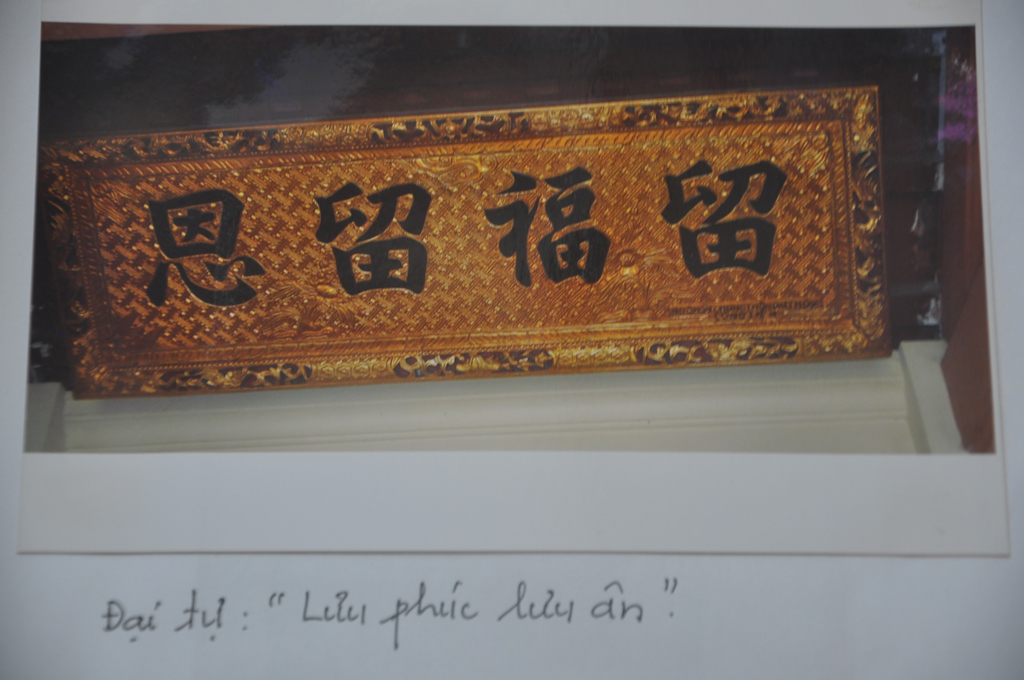 恩留福留
Đại tự: "Lưu phúc lưu ân".